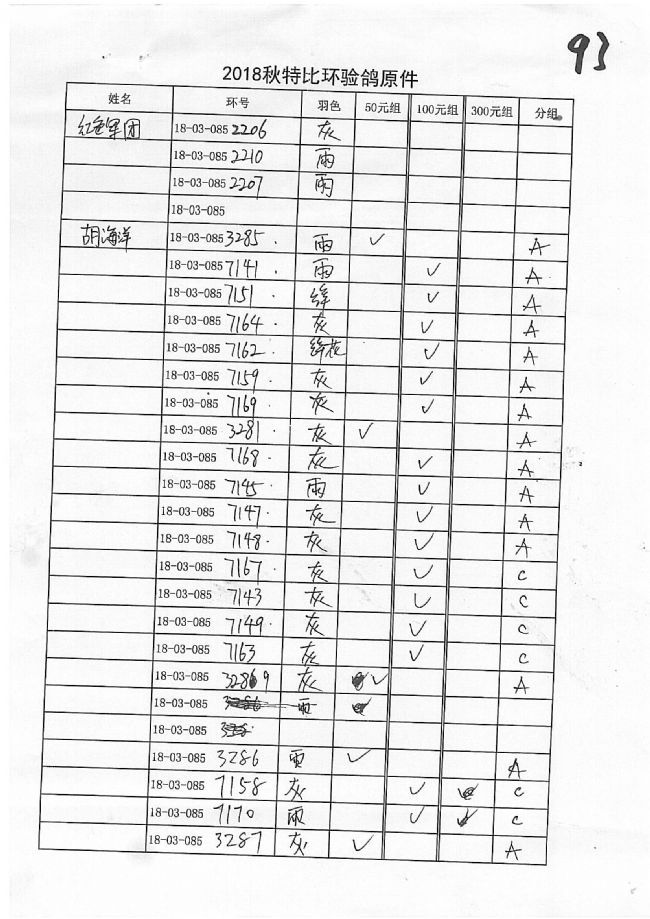 93
2018秋特比环验鸽原件
姓名 环号 羽色 50元组 100元组 300元组 分组
红色军团 18-03-085 2206 灰
18-03-085 2210 雨
18-03-085 2207 雨
18-03-085
胡海洋 18-03-085 3285 雨 ✓ A
18-03-085 7141 雨 ✓ A
18-03-085 7151 绛 ✓ A
18-03-085 7164 灰 ✓ A
18-03-085 7162 绛花 ✓ A
18-03-085 7159 灰 ✓ A
18-03-085 7169 灰 ✓ A
18-03-085 3281 灰 ✓ A
18-03-085 7168 灰 ✓ A
18-03-085 7145 雨 ✓ A
18-03-085 7147 灰 ✓ A
18-03-085 7148 灰 ✓ A
18-03-085 7167 灰 ✓ C
18-03-085 7143 灰 ✓ C
18-03-085 7149 灰 ✓ C
18-03-085 7163 灰 ✓ C
18-03-085 灰 ✓ A
18-03-085
18-03-085
18-03-085 3286 雨 ✓ A
18-03-085 7158 灰 ✓ C
18-03-085 7170 雨 ✓ C
18-03-085 3287 灰 ✓ A